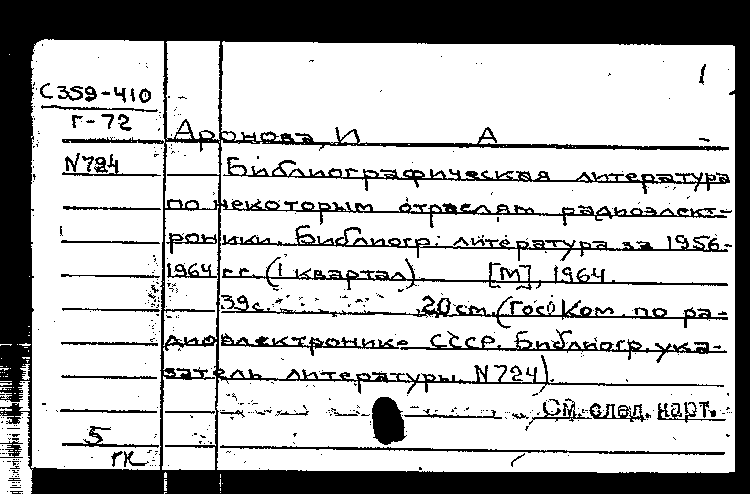 1
С359-410
Г-72
Аронова, И А
N724 Библиографическая литература
по некоторым отраслям радиоэлект-
роники. Библиогр. литература за 1956-
1964 гг. (I квартал). [М], 1964.
39с. 20см. (Гос. Ком. по ра-
диоэлектронике СССР. Библиогр. ука-
затель литературы. N724).
См. след. карт.
5
ГК